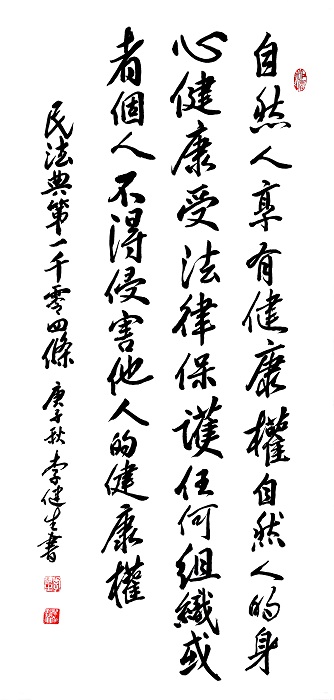 自然人享有健康權自然人的身
心健康受法律保護任何組織或
者個人不得侵害他人的健康權
民法典第一千零四條 庚子秋 李健生書